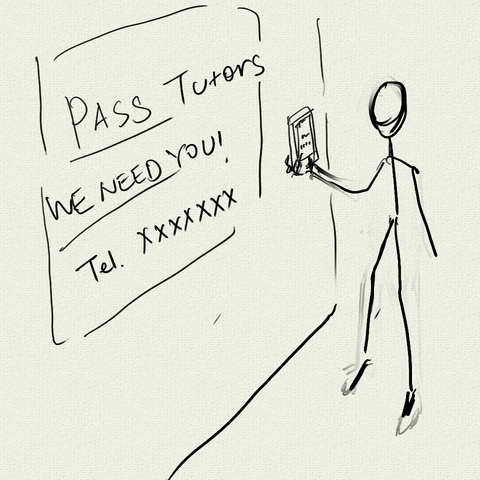 PASS Tutors
WE NEED YOU!
Tel. XXXXXXX